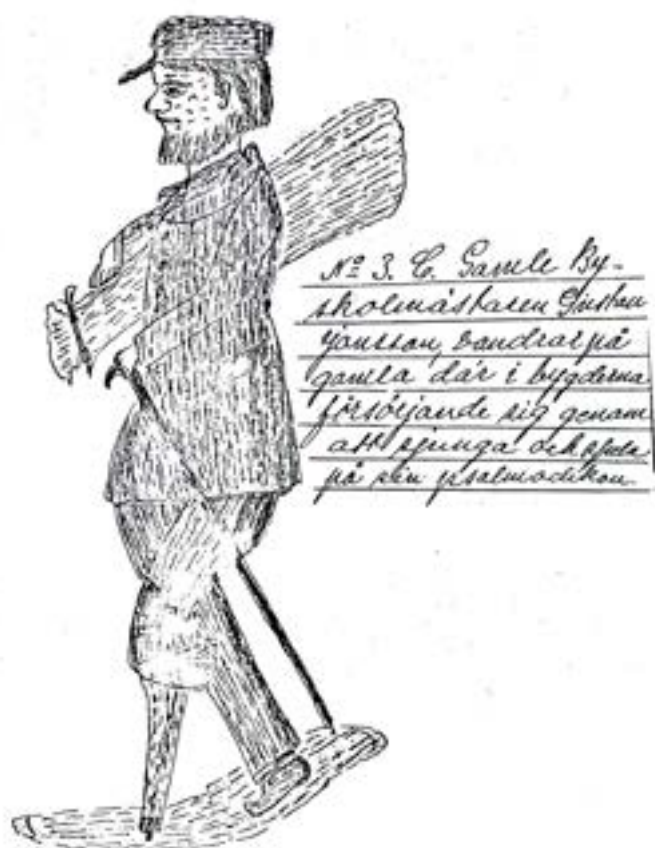 No 3. C. Gamle By-
skolmästaren Gustav
Jansson, vandrar på
gamla dar i bygderna
försörjande sig genom
att sjunga och spela
på sin psalmodikon.